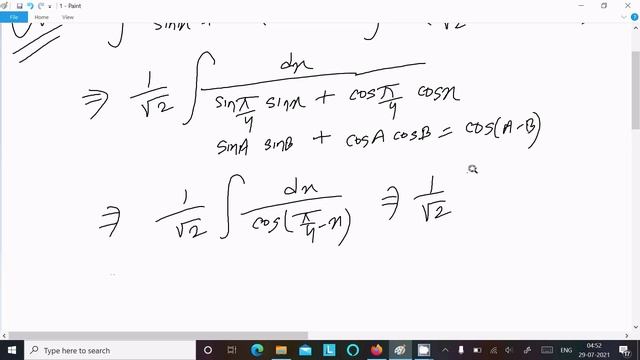 1 - Paint
File Home View
sin x
√2
⇒ 1/√2 ∫ dx / (sin π/4 sin x + cos π/4 cos x)
sin A sin B + cos A cos B = cos(A-B)
⇒ 1/√2 ∫ dx / cos(π/4 - x) ⇒ 1/√2
Type here to search
ENG
04:52
29-07-2021